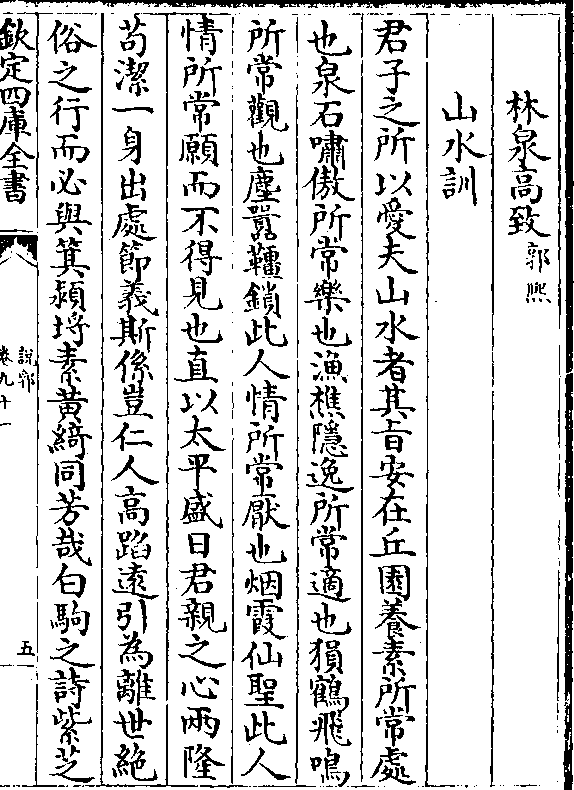 林泉高致郭熙
山水訓
君子之所以愛夫山水者其旨安在丘園養素所常處
也泉石嘯傲所常樂也漁樵隱逸所常適也猨鶴飛鳴
所常觀也塵囂韁鎖此人情所常厭也烟霞仙聖此人
情所常願而不得見也直以太平盛日君親之心兩隆
苟潔一身出處節義斯係豈仁人高蹈遠引為離世絶
俗之行而必與箕潁埒素黄綺同芳哉白駒之詩紫芝
欽定四庫全書
說郛
卷九十一
五